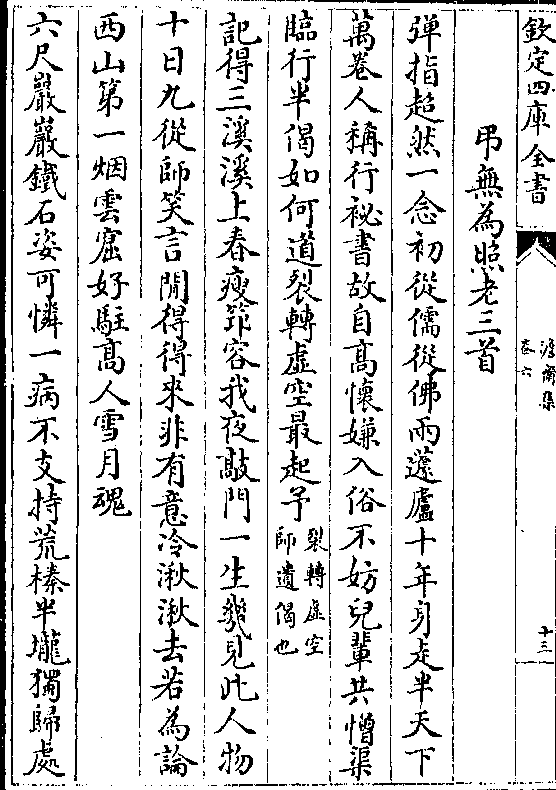 欽定四庫全書
澹齋集
卷六
十三
弔無為照老三首
彈指超然一念初從儒從佛兩蘧廬十年身走半天下
萬卷人稱行祕書故自髙懷嫌入俗不妨兒輩共憎渠
臨行半偈如何道裂轉虚空最起予裂轉虚空師遺偈也
記得三溪溪上春瘦笻容我夜敲門一生幾見此人物
十日九從師笑言閒得得來非有意冷湫湫去若為論
西山第一烟雲窟好駐髙人雪月魂
六尺巖巖鐵石姿可憐一病不支持荒榛半壠獨歸處